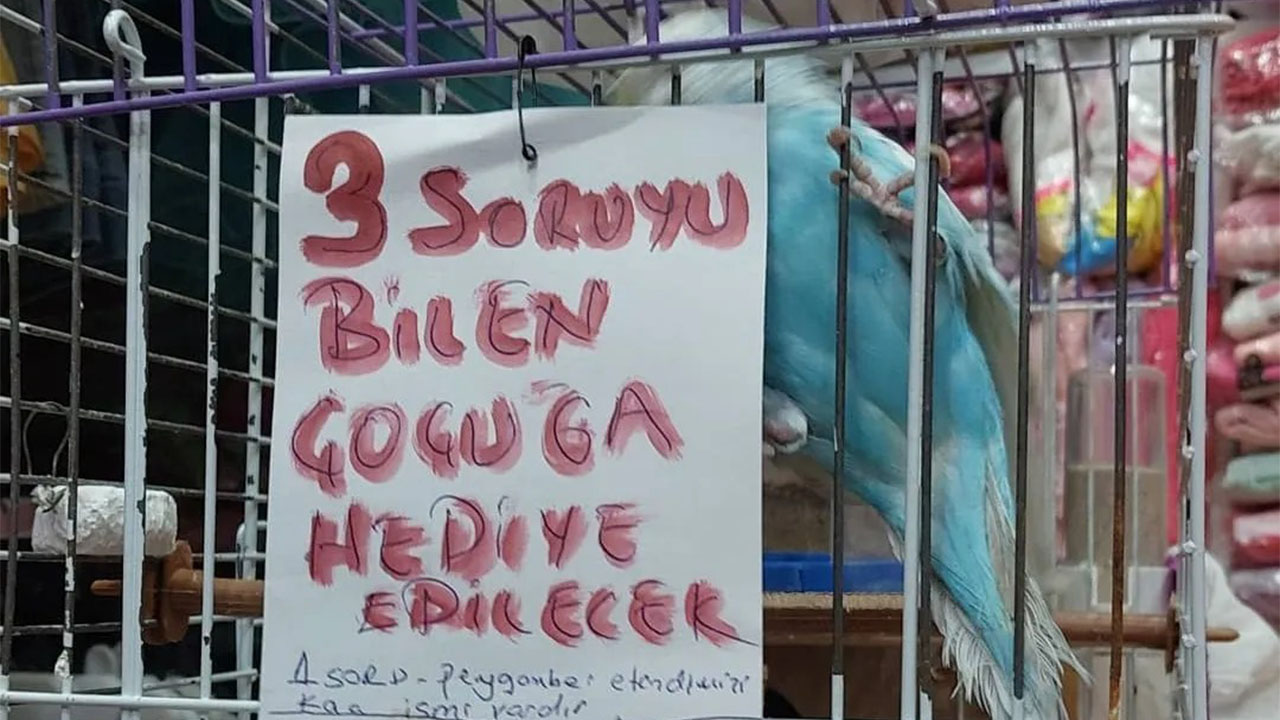 3 SORUYU
BİLEN
ÇOCUĞA
HEDİYE
EDİLECEK
1 SORU - peygamber efendimizi
Kaç ismi vardır